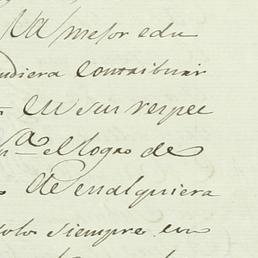 la mejor edu
udiera contribuir
en sus respec
el logro de
de cualquiera
solo siempre en